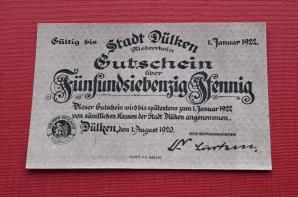 Gültig bis Stadt Dülken 1. Januar 1922.
(Niederrhein)
Gutschein
über
Fünfundsiebenzig Pfennig
Dieser Gutschein wird bis spätestens zum 1. Januar 1922
von sämtlichen Kassen der Stadt Dülken angenommen.
Dülken, den 1. August 1920.
DER BÜRGERMEISTER